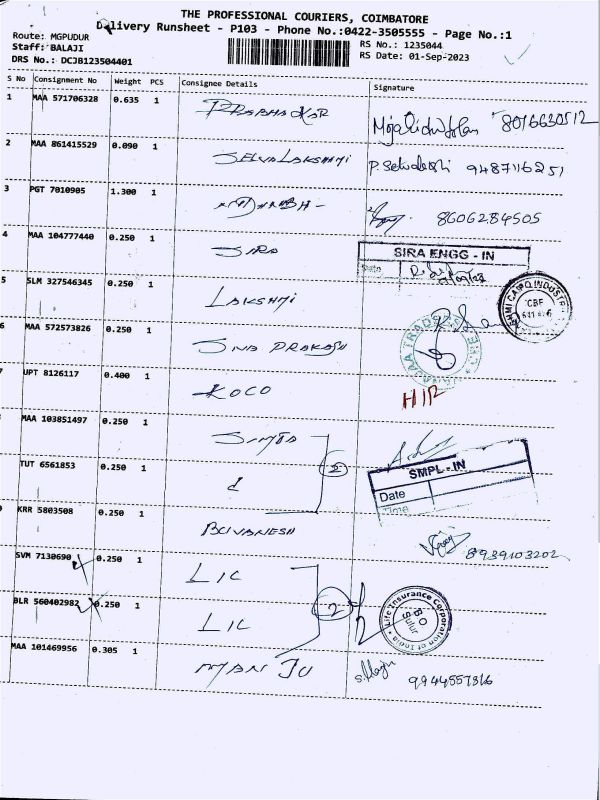 THE PROFESSIONAL COURIERS, COIMBATORE
Delivery Runsheet - P103 - Phone No.:0422-3505555 - Page No.:1
Route: MGPUDUR
Staff: BALAJI
RS No.: 1235044
DRS No.: DCJB123504401
RS Date: 01-Sep-2023
S No Consignment No Weight PCS Consignee Details Signature
1 MAA 571706328 0.635 1 PRABHAKAR 8016630512
2 MAA 861415529 0.090 1 SELVALAKSHMI 9487116251
3 PGT 7010905 1.300 1 8606284505
4 MAA 104777440 0.250 1 SIRA
SIRA ENGG - IN
Date
5 SLM 327546345 0.250 1 LAKSHMI
CBE
6 MAA 572573826 0.250 1 SIVA PRAKASH
7 UPT 8126117 0.400 1 KOCO
MAA 103851497 0.250 1 SIMTA
2
SMPL - IN
Date
Time
TUT 6561853 0.250 1
KRR 5803508 0.250 1 BUVANESH 8939103202
SVM 7130690 0.250 1 LIC
2
Life Insurance Corporation of India
BO
Sulur
BLR 560402982 0.250 1 LIC
MAA 101469956 0.305 1 MANJU